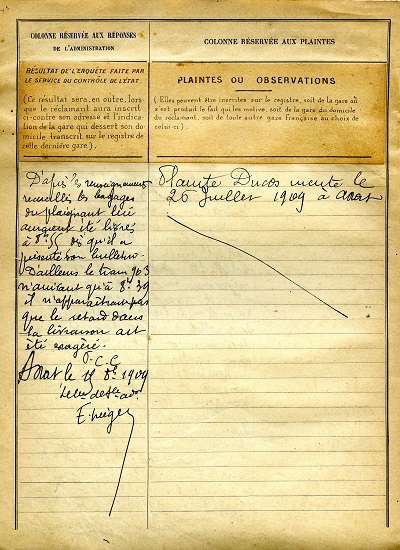 COLONNE RÉSERVÉE AUX RÉPONSES
DE L'ADMINISTRATION
RÉSULTAT DE L'ENQUÊTE FAITE PAR
LE SERVICE DU CONTRÔLE DE L'ÉTAT
(Ce résultat sera, en outre, lors-
que le réclamant aura inscrit
ci-contre son adresse et l'indica-
tion de la gare qui dessert son do-
micile transcrit sur le registre de
cette dernière gare).
Dapiès les renseignements
recueillis les bagages
du plaignant lui
auraient été livrés
à 8h55 dès qu'il a
présenté son bulletin.
Dailleurs le train 903
n'arrivant qu'à 8h39
il n'apparaîtrait pas
que le retard dans
la livraison ait
été exagéré.
P.C.C.
le 1909
COLONNE RÉSERVÉE AUX PLAINTES
PLAINTES OU OBSERVATIONS
(Elles peuvent être inscrites sur le registre, soit de la gare où
s'est produit le fait qui les motive, soit de la gare du domicile
du réclamant, soit de toute autre gare française au choix de
celui-ci).
Plainte Ducos inscrite le
26 Juillet 1909 à